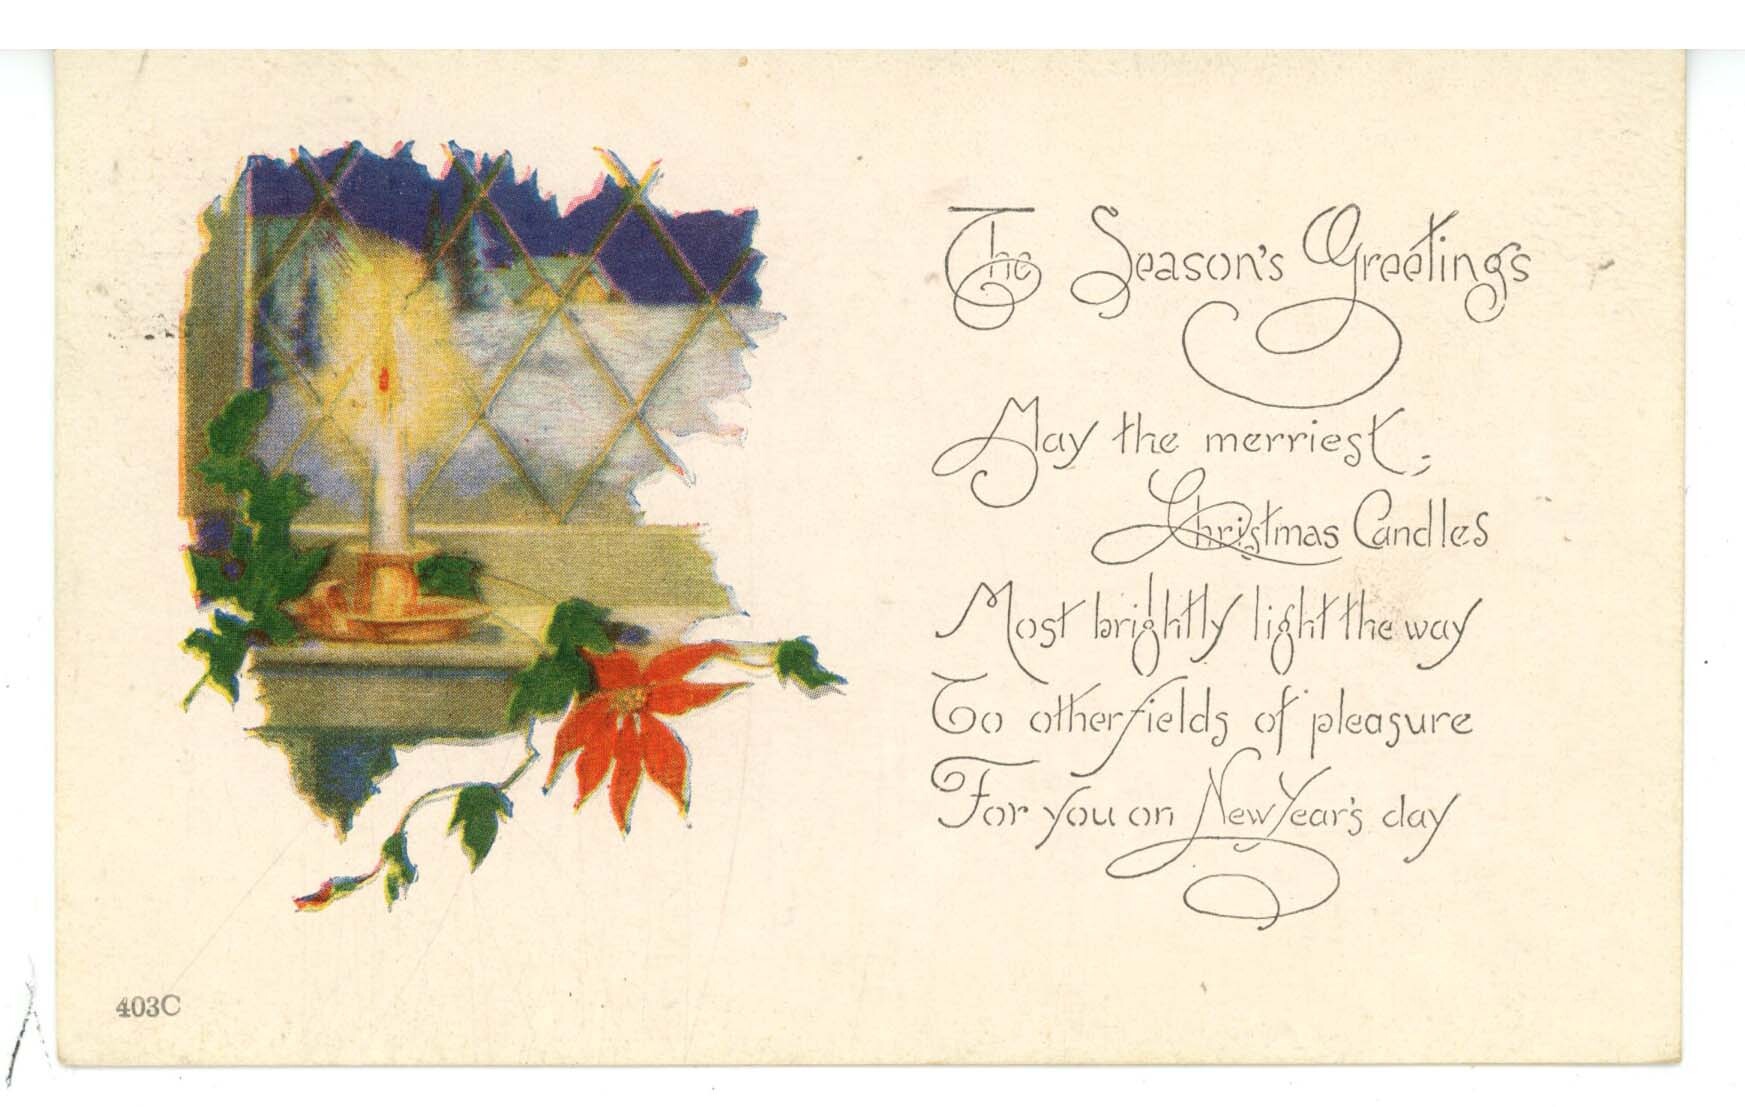 The Season's Greetings
May the merriest,
Christmas Candles
Most brightly light the way
To other fields of pleasure
For you on New Year's day
403C